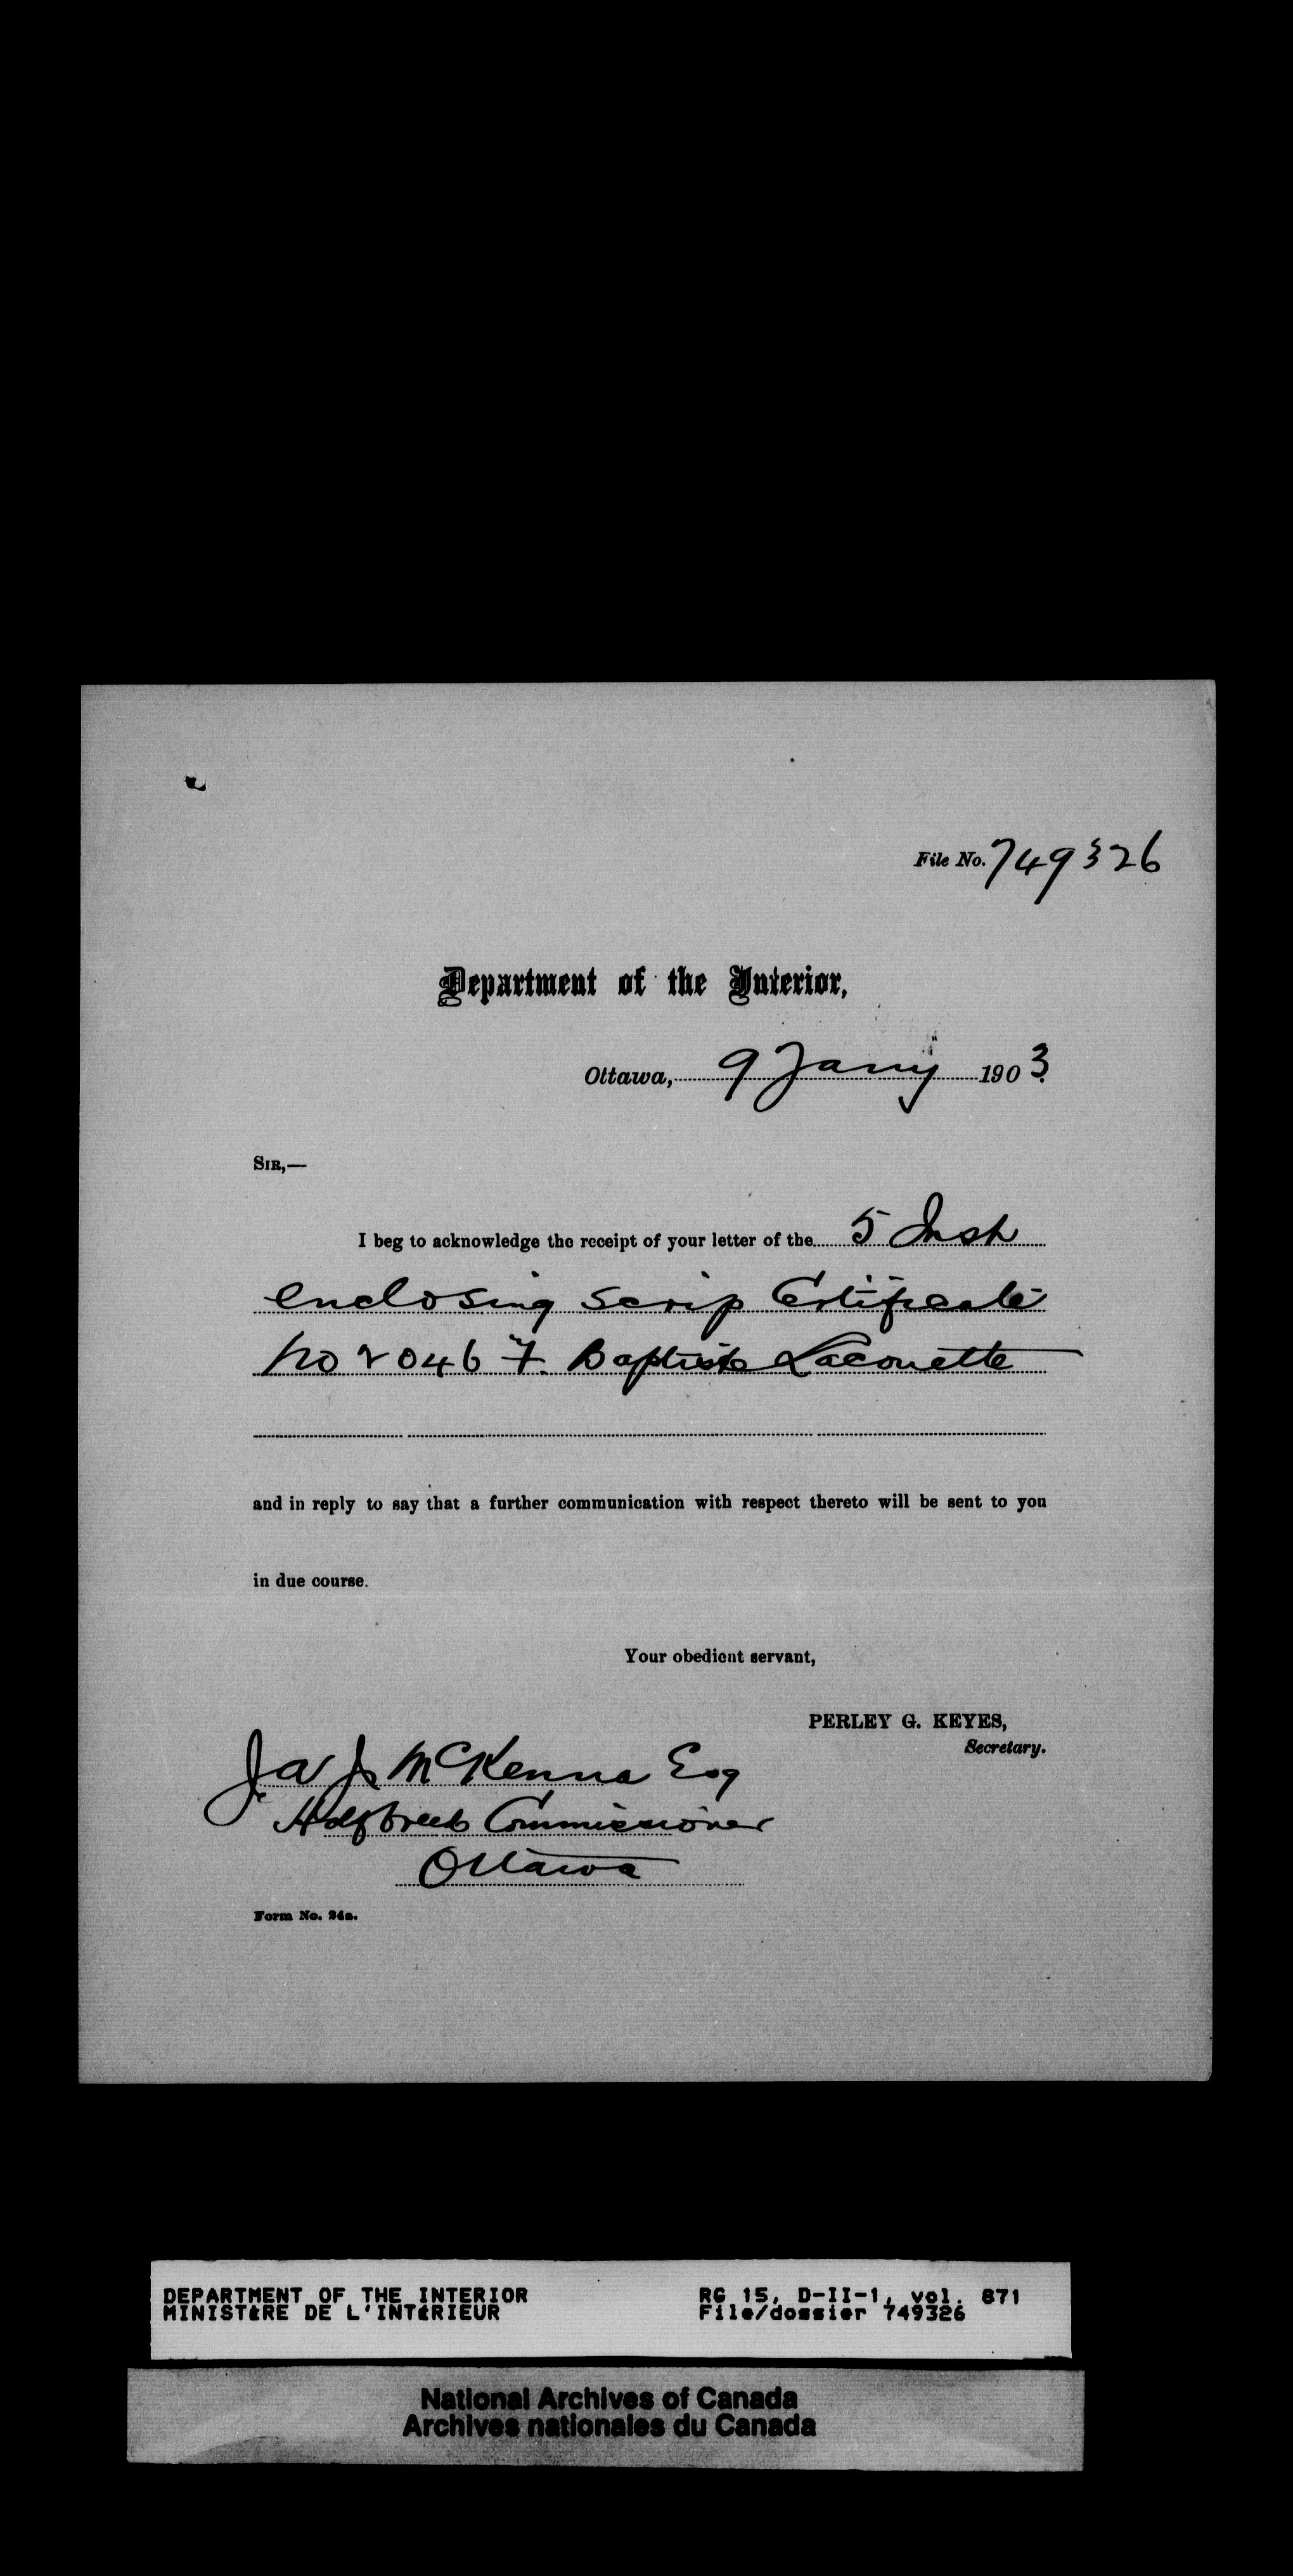 File No. 749326
Department of the Interior,
Ottawa, 9 Jany 1903
SIR,—
I beg to acknowledge the receipt of your letter of the 5 Inst
enclosing scrip Certificate
No 2046 F. Baptiste Lacouette
and in reply to say that a further communication with respect thereto will be sent to you
in due course.
Your obedient servant,
PERLEY G. KEYES,
Secretary.
J a J McKenna Esq
Halfbreed Commissioner
Ottawa
Form No. 24a.
DEPARTMENT OF THE INTERIOR RG 15, D-II-1, vol. 871
MINISTÈRE DE L'INTÉRIEUR File/dossier 749326
National Archives of Canada
Archives nationales du Canada